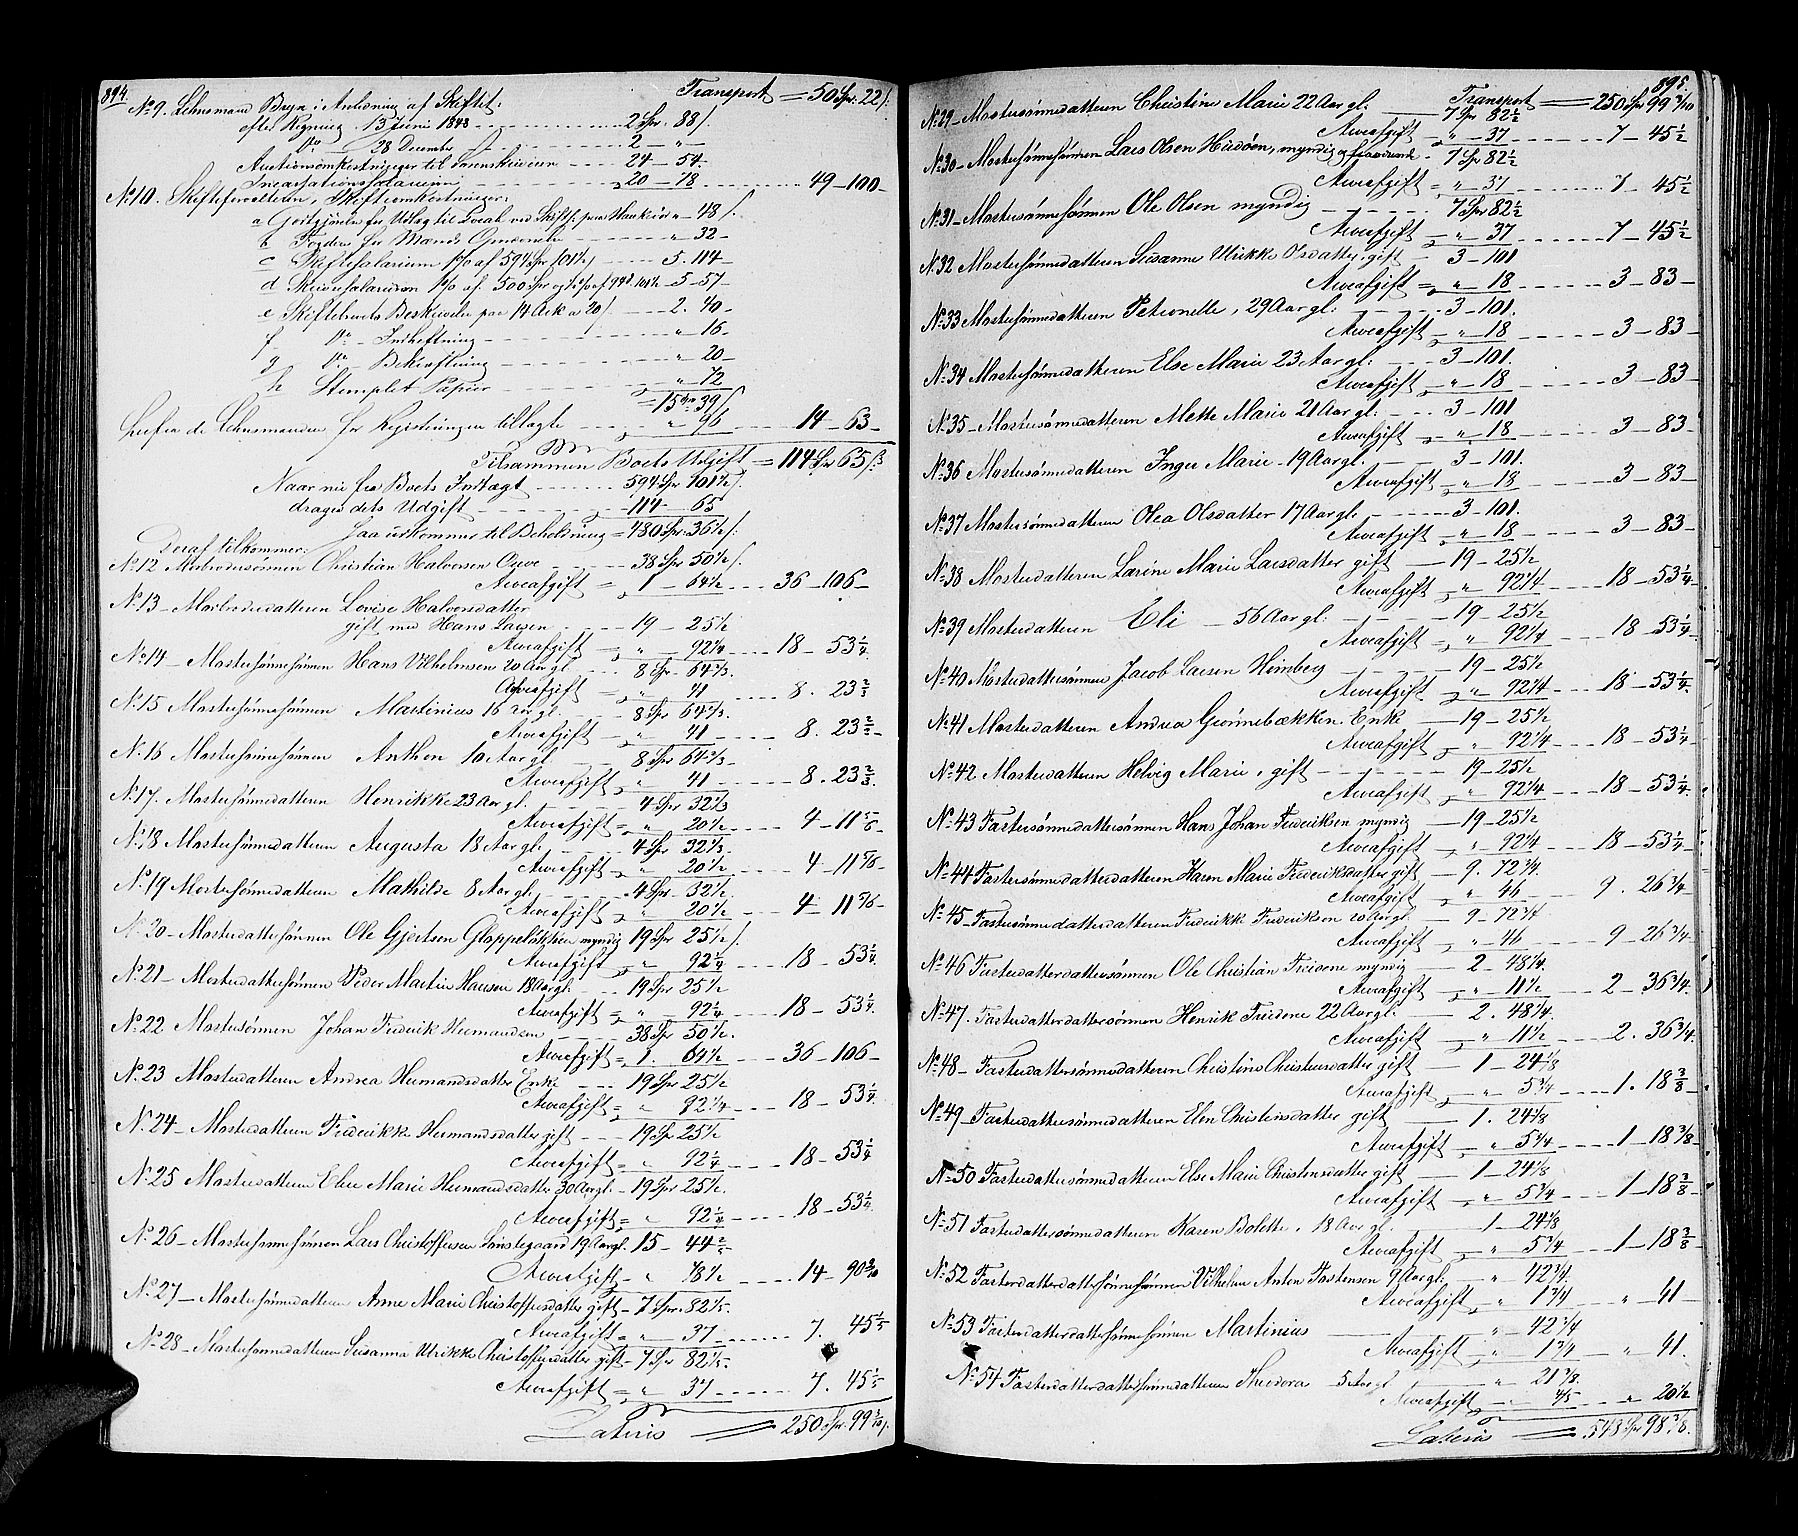 894
Transport = 50 Spr. 22 /.
No 9. Lehnsmand Bryn i Anledning af Skiftet:
efter Regning 13 Juni 1848 2 Spr. 88 /.
Do 28 December 2 — " —
Auctionsomkostninger til Sorenskriveren 24 — 54 —
Incassationssalarium 20 — 78 49 — 100 —
No 10. Skifteforvalteren, Skifteomkostninger:
a Godtgjørelse for Udlæg til Porto ved Skiftet " — 48 /.
b Fogden for Mænds Opnævnelse " — 32 —
c Skiftesalarium 1 % af 594 Spr 101½ 5. 114 —
d Skriversalarium 1 % af 500 Spr og ½ % af 94 Spr 101½ 5 — 57 —
e Skiftebrevets Beskrivelse paa 14 Ark a 20 /. 2. 40 —
f Do — Indheftning " — 16 —
g Do — Bekræftning " — 20 —
h Stemplet Papiir " — 72
= 15 Spr 39 /.
herfra de Lehnsmanden for Registreringen tillagte " 96 14 — 63 —
Tilsammen Boets Udgift = 114 Spr 65 /.
Naar nu fra Boets Indtægt 594 Spr 101½ /.
drages dets Udgift 114 — 65
Saa udkommer til Beholdning = 480 Spr. 36½ /.
Deraf tilkommer:
No 12 Morbrodersønnen Christian Halvorsen 38 Spr 50½ /.
Arveafgift = 1 — 64½ 36 — 106 —
No 13 — Morbroderdatteren Lovise Halvorsdatter
gift med Hans Larsen 19 — 25½
Arveafgift = " 92¼ 18 — 53¼
No 14 — Mostersønnesønnen Hans Vilhelmsen 20 Aar gl. 8 Spr. 64⅔.
Arveafgift = " 41 8. 23⅔
No 15 Mostersønnesønnen Martinius 16 Aar gl. 8 Spr 64⅔.
Arveafgift " 41 8. 23⅔ —
No 16 Mostersønnesønnen Anthon 10 Aar gl 8 Spr 64⅔ —
Arveafgift " 41 8. 23⅔
No 17. Mostersønnedatteren Henrikke 23 Aar gl. 4 Spr 32⅓
Arveafgift = " 20½ 4 — 11⅚ —
No 18 Mostersønnedatteren Augusta 18 Aar gl. 4 Spr 32⅓.
Arveafgift = " 20½ 4 — 11⅚
No 19 Mostersønnedatteren Mathilde 8 Aar gl. 4 Spr. 32⅓.
Arveafgift " 20½ 4 — 11⅚ —
No 20 — Mosterdattersønnen Ole Gjertsen myndig 19 Spr 25½ /.
Arveafgift " 92¼ 18 — 53¼
No 21 — Mosterdattersønnen Peder Martin Hansen 18 Aar gl. 19 Spr 25½
Arveafgift = " 92¼ 18 — 53¼
No 22 Mostersønnen Johan Frederik Hermandsen 38 Spr 50½.
Arveafgift = 1. 64½ 36 — 106 —
No 23 Mosterdatteren Andrea Hermandsdatter Enke 19 Spr 25½
Arveafgift = " 92¼ 18 — 53¼
No 24 — Mosterdatteren Frederikke Hermandsdatter gift 19 Spr 25½
Arveafgift = " 92¼ 18 — 53¼
No 25 Mosterdatteren Marie Hermandsdatter 30 Aar gl. — 19 Spr 25½.
Arveafgift = " 92¼ 18 — 53¼
No 26 — Mostersønnesønnen Lars Christoffersen 19 Aar gl. 15 — 44⅖
Arveafgift " 73½ 14 — 90 9/10
No 27 — Mostersønnedatteren Anne Marie Christoffersdatter gift — 7 Spr. 82⅕ —
Arveafgift = " 37 7. 45⅕
No 28 — Mostersønnedatteren Susanna Ulrikke Christoffersdatter gift — 7 Spr 82⅕ —
Arveafgift = " 37 7. 45⅕
Lateris = 250 Spr. 99 3/10 /.
895
Transport = 250 Spr 99 3/10
No 29 — Mostersønnedatteren Christine Marie 22 Aar gl. 7 Spr 82½
Arveafgift " — 37 7 — 45½
No 30 — Mostersønnesønnen Lars Olsen, myndig og fraværende — 7 Spr 82½
Arveafgift = " — 37 7 — 45½
No 31 — Mostersønnesønnen Ole Olsen myndig 7 Spr 82½
Arveafgift " — 37 7 — 45½
No 32 Mostersønnedatteren Susanne Ulrikke Olsdatter, gift 3 — 101
Arveafgift = " — 18 3 — 83 —
No 33 Mostersønnedatteren Petronelle, 29 Aar gl. 3 — 101.
Arveafgift " — 18 3 — 83 —
No 34 Mostersønnedatteren Else Marie 23 Aar gl: 3 — 101.
Arveafgift " — 18 3 — 83 —
No 35 — Mostersønnedatteren Mette Marie 21 Aar gl: 3 — 101
Arveafgift " — 18 3 — 83 —
No 36 Mostersønnedatteren Inger Marie — 19 Aar gl. 3 — 101.
Arveafgift " — 18 3 — 83 —
No 37 Mostersønnedatteren Olea Olsdatter 17 Aar gl. 3 — 101.
Arveafgift " — 18 3 — 83 —
No 38 Mosterdatteren Larine Marie Larsdatter gift 19 — 25½
Arveafgift " 92¼ 18 — 53¼.
No 39 Mosterdatteren Eli — 56 Aar gl. 19 — 25½
Arveafgift " 92¼ 18 — 53¼
No 40 Mosterdattersønnen Jacob Larsen Heimberg 19 — 25½
Arveafgift " 92¼ 18 — 53¼.
No 41 Mosterdatteren Andrea Grønnebækken Enke 19 — 25½
Arveafgift " 92¼ 18 — 53¼ —
No 42 Mosterdatteren Helvig Marie, gift 19 — 25½
Arveafgift " 92¼ 18 — 53¼.
No 43 Fastersønnedattersønnen Hans Johan Frederiksen myndig 19 — 25½
Arveafgift " 92¼ 18 — 53¼ —
No 44 Fastersønnedatterdatteren Karen Marie Frederiksdatter gift 9. 72¾.
Arveafgift " 46 9. 26¾ —
No 45 — Fastersønnedatterdatteren Frederikke Frederiksen 20 Aar gl. 9 — 72¾
Arveafgift " — 46 9 — 26¾ —
No 46 Fasterdatterdattersønnen Ole Christian myndig 2 — 48¼.
Arveafgift " — 11½ 2 — 36¾.
No 47. Fasterdatterdattersønnen Henrik 22 Aar gl. 2. 48¼.
Arveafgift " — 11½ 2. 36¾.
No 48 — Fasterdattersønnedatteren Christine Christensdatter gift 1 — 24⅛
Arveafgift " 5¾ 1. 18⅜ —
No 49 — Fasterdattersønnedatteren Elen Christensdatter gift 1. 24⅛
Arveafgift " 5¾ 1 — 18⅜ —
No 50 Fasterdattersønnedatteren Else Marie Christensdatter gift 1 — 24⅛
Arveafgift " 5¾ 1 — 18⅜ —
No 51 Fasterdattersønnedatteren Karen Bolette, 18 Aar gl. 1 — 24⅛
Arveafgift " 5¾ 1 — 18⅜
No 52 Fasterdatterdattersønnesønnen Vilhelm Anton Torstensen 9 Aar gl. " — 42¾.
Arveafgift " 1¾ " — 41 —
No 53 Fasterdatterdattersønnesønnen Martinius " — 42¾
Arveafgift " 1¾ " 41.
No 54 Fasterdatterdattersønnedatteren Theodora 5 Aar gl " 21⅜.
Arveafgift " ⅘ " 20½
Lateris = 548 Spr 98⅜.